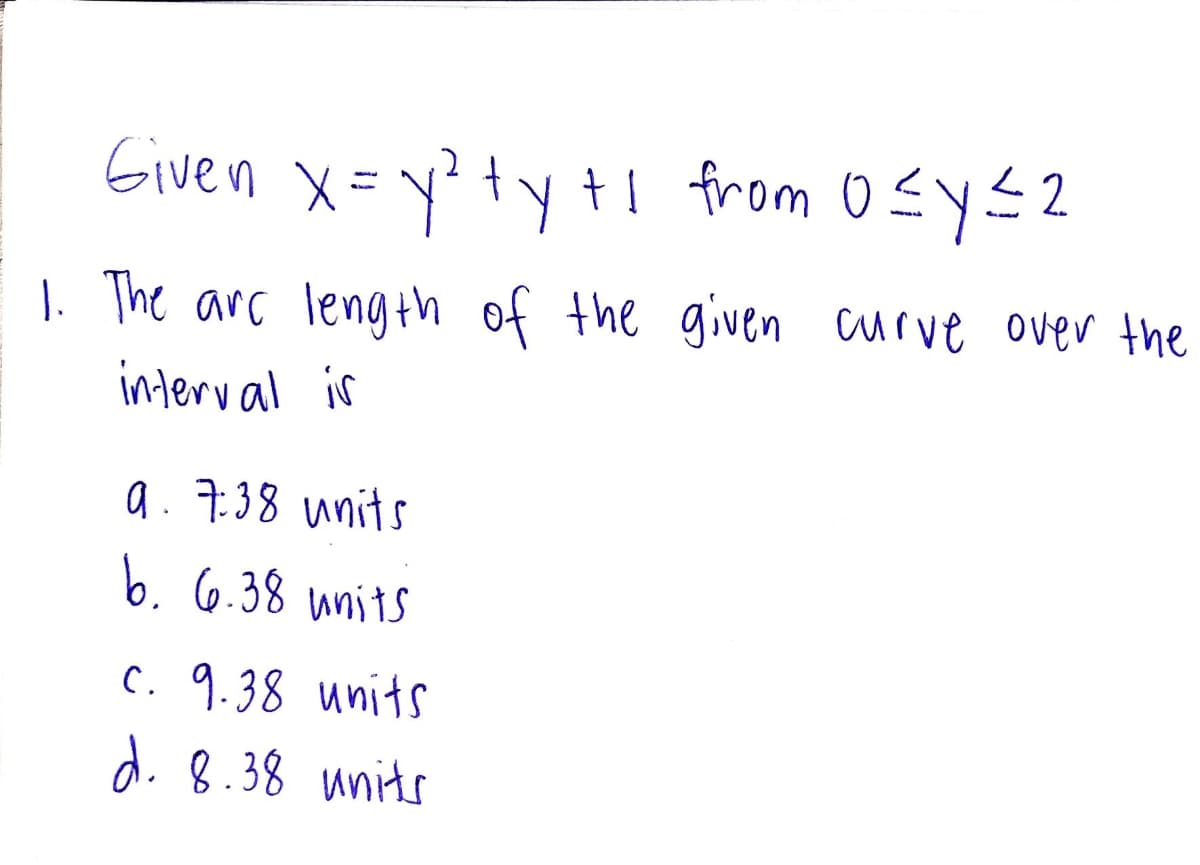 Given x = y² + y + 1 from 0 ≤ y ≤ 2
1. The arc length of the given curve over the
interval is
a. 7.38 units
b. 6.38 units
c. 9.38 units
d. 8.38 units